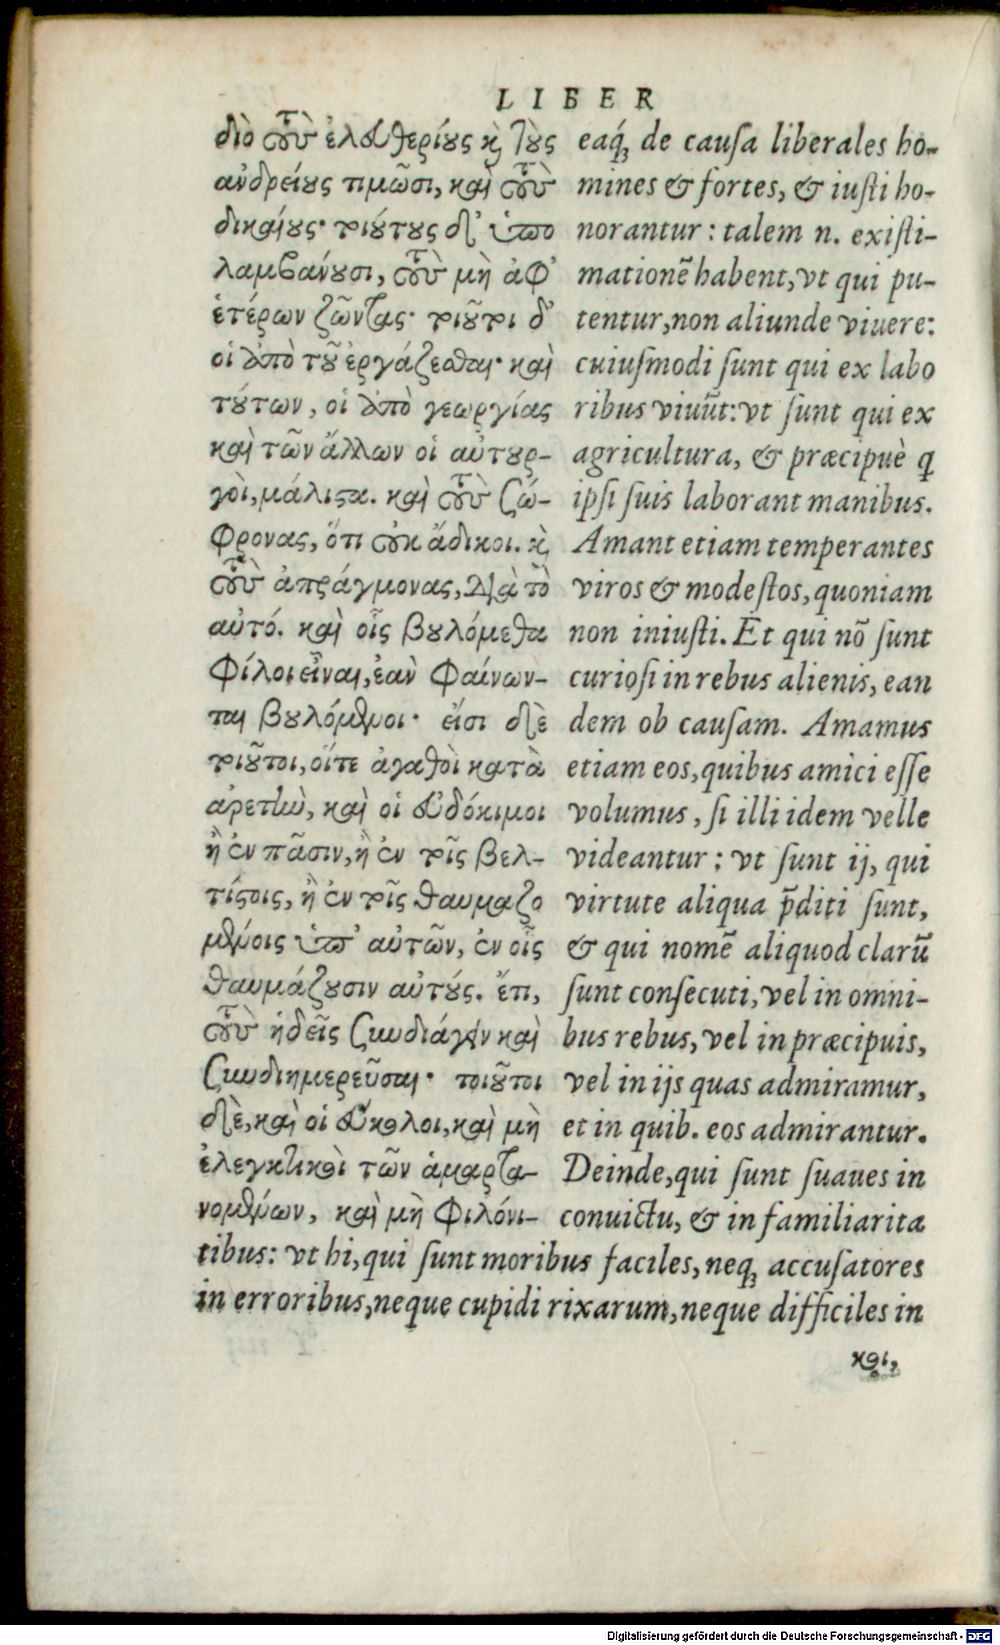 LIBER
διὸ τοὺς ἐλευθερίους κὴ τοὺς
ανδρείους τιμῶσι, καὶ τοὺς
δικαίους· τοιούτους δ᾽ ὑπο
λαμβανουσι, τοὺς μὴ ἀφ᾽
ἑτέρων ζῶντας· τοιοῦτοι δ᾽
οἱ ἀπὸ τοῦ ἐργάζεσθαι· καὶ
τούτων, οἱ ἀπὸ γεωργίας
καὶ τῶν ἄλλων οἱ αὐτουρ-
γοὶ, μάλιστα. καὶ τοὺς σώ-
φρονας, ὅτι οὐκ ἄδικοι. κὴ
τοὺς ἀπράγμονας, διὰ τὸ
αὐτό. καὶ οἷς βουλόμεθα
φίλοι εἶναι, ἐὰν φαίνων-
ται βουλόμενοι· εἰσι δὲ
τοιοῦτοι, οἵτε ἀγαθοὶ κατὰ
αρετὴν, καὶ οἱ εὐδόκιμοι
ἢ ἐν πᾶσιν, ἢ ἐν τοῖς βελ-
τίστοις, ἢ ἐν τοῖς θαυμαζο
μένοις ὑπ᾽ αὐτῶν, ἐν οἷς
θαυμάζουσιν αὐτούς. ἔτι,
τοὺς ἡδεῖς συνδιάγειν καὶ
συνδιημερεῦσαι· τοιοῦτοι
δὲ, καὶ οἱ εὔκολοι, καὶ μὴ
ἐλεγκτικοὶ τῶν ἁμαρτα-
νομένων, καὶ μὴ φιλόνι-
eaq́; de causa liberales ho-
mines & fortes, & iusti ho-
norantur: talem n. existi-
mationē habent, vt qui pu-
tentur, non aliunde viuere:
cuiusmodi sunt qui ex labo
ribus viuūt: vt sunt qui ex
agricultura, & præcipuè q
ipsi suis laborant manibus.
Amant etiam temperantes
viros & modestos, quoniam
non iniusti. Et qui nō sunt
curiosi in rebus alienis, ean
dem ob causam. Amamus
etiam eos, quibus amici esse
volumus, si illi idem velle
videantur: vt sunt ij, qui
virtute aliqua p̄diti sunt,
& qui nomē aliquod clarū
sunt consecuti, vel in omni-
bus rebus, vel in præcipuis,
vel in ijs quas admiramur,
et in quib. eos admirantur.
Deinde, qui sunt suaues in
conuictu, & in familiarita
tibus: vt hi, qui sunt moribus faciles, neq; accusatores
in erroribus, neque cupidi rixarum, neque difficiles in
κοι,
Digitalisierung gefördert durch die Deutsche Forschungsgemeinschaft - DFG